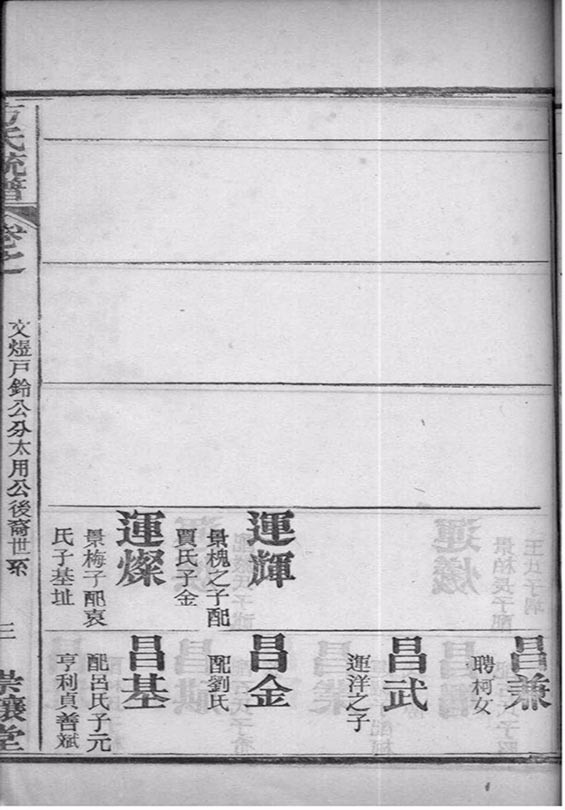 運輝
景槐之子配
賈氏子金
運燦
景梅子配袁
氏子基址
昌兼
聘柯女
昌武
運洋之子
昌金
配劉氏
昌基
配呂氏子元
亨利貞善斌
方氏統譜
卷之
文煜戶鈴公分太用公後裔世系
三
崇讓堂